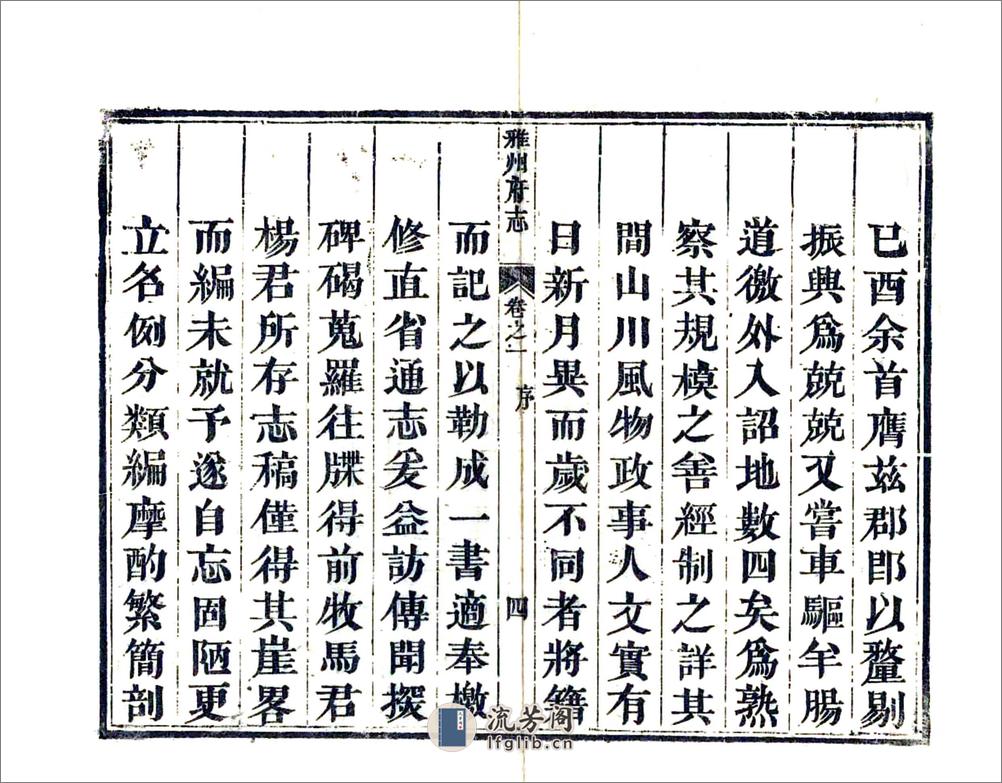 已酉余首膺茲郡卽以釐剔
振興爲兢兢又嘗車驅羊腸
道徼外入詔地數四矣爲熟
察其規模之善經制之詳其
間山川風物政事人文實有
日新月異而歲不同者將籍
雅州府志 卷之一 序 四
而記之以勒成一書適奉檄
修直省通志爰益訪傳聞摉
碑碣蒐羅往牒得前牧馬君
楊君所存志稿僅得其崖畧
而編未就予遂自忘固陋更
立名例分類編摩酌繁簡剖
流芳阁
lfglib.cn